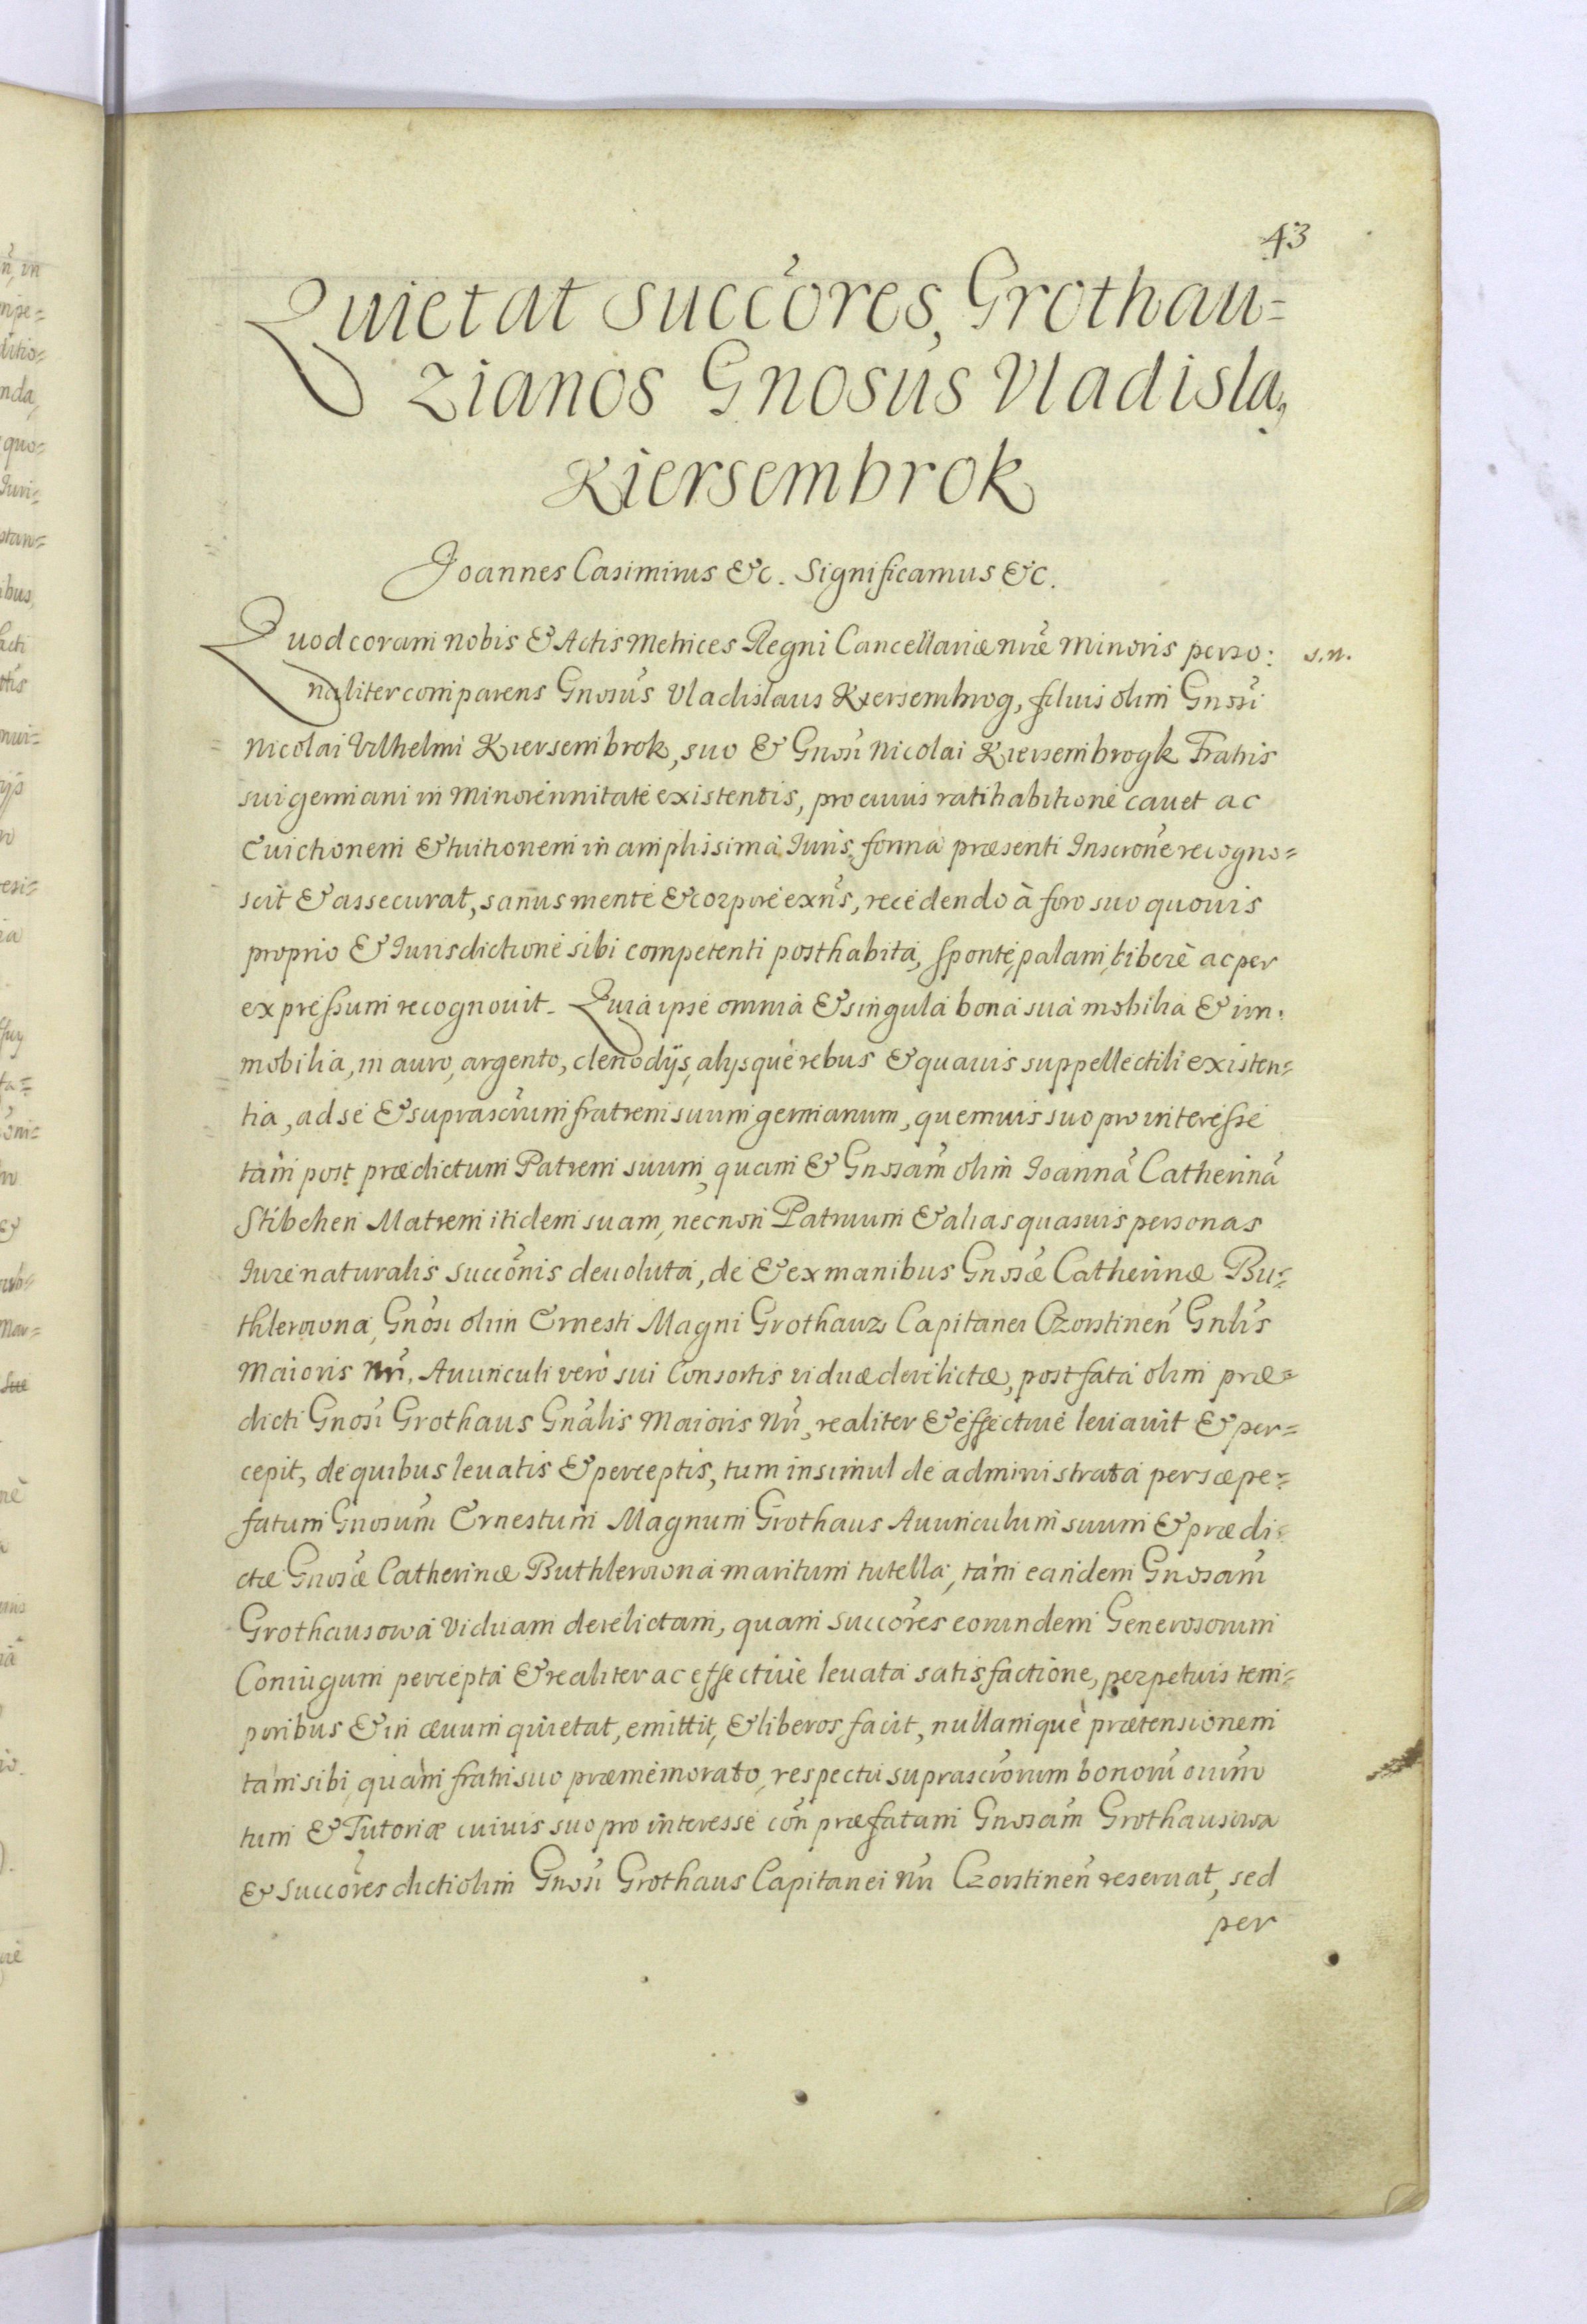 43
Quietat succores, Grothau=
zianos Gnosus Vladisla,
Kiersembrok
Joannes Casimirus &c. Significamus &c.
Quod coram nobis & Actis Metrices Regni Cancellariæ nræ Minoris perso: s.n.
naliter comparens Gnosus Vladislaus Kiersembrog, filius olim Gnosi
Nicolai Vilhelmi Kiersembrok, suo & Gnosi Nicolai Kiersembrogk Fratris
sui germani in minorennitate existentis, pro cuius ratihabitione cauet ac
Euictionem & tuitionem in amplissima Iuris forma præsenti Inscrone recogno=
scit & assecurat, sanus mente & corpore exns, recedendo à foro suo quouis
proprio & Iurisdictione sibi competenti posthabita, sponte, palam, libere ac per
expressum recognouit. Quia ipse omnia & singula bona sua mobilia & im:
mobilia, in auro, argento, clenodijs, alijsque rebus & quauis suppellectili existen=
tia, ad se & suprascrum fratrem suum germanum, quemuis suo pro interesse
tam post prædictum Patrem suum, quam & Gnosam olim Joanna Catherina
Stibchen Matrem itidem suam, necnon Patruum & alias quasuis personas
Iure naturalis succonis deuoluta, de & ex manibus Gnosæ Catherinæ Bu=
thlerowna, Gnosi olim Ernesti Magni Grothauz Capitanei Czorstinen Gnlis
Maioris Nri, Auunculi vero sui Consortis viduæ derelictæ, post fata olim præ=
dicti Gnosi Grothaus Gnalis Maioris Nri, realiter & effectiue leuauit & per=
cepit, de quibus leuatis & perceptis, tum insimul de administrata per sæpe=
fatum Gnosum Ernestum Magnum Grothaus Auunculum suum & prædi=
ctæ Gnosæ Catherinæ Buthlerowna maritum tutella, tam eandem Gnosam
Grothausowa Viduam derelictam, quam succores eorundem Generosorum
Coniugum percepta & realiter ac effectiue leuata satisfactione, perpetuis tem=
poribus & in æuum quietat, emittit, & liberos facit, nullamque prætensionem
tam sibi, quam fratri suo præmemorato, respectu suprascrorum bonoru oium
tum & Tutoriæ cuiuis suo pro interesse con præfatam Gnosam Grothausowa
& succores dicti olim Gnosi Grothaus Capitanei Nri Czorstinen reseruat, sed
per